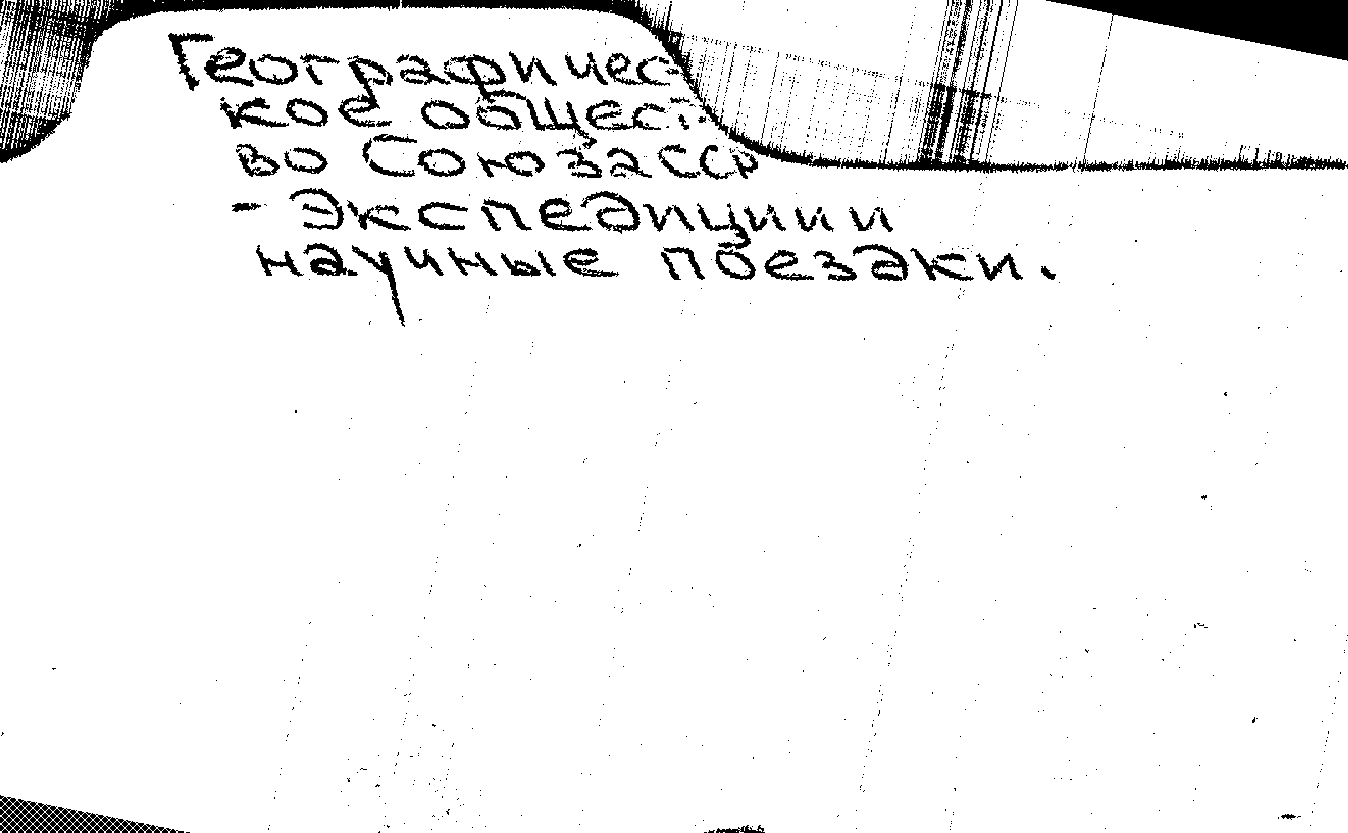 Географичес-
кое общест-
во Союза ССР
- Экспедиции и
научные поездки.